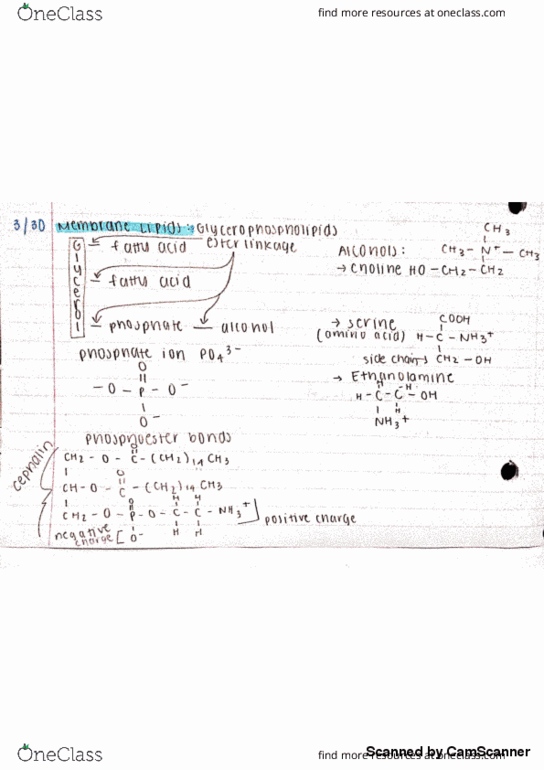 OneClass
find more resources at oneclass.com
3/30 Membrane Lipids: Glycerophospholipids
Glycerol
fatty acid
ester linkage
fatty acid
phosphate — alcohol
phosphate ion PO₄³⁻
O
⁻O – P – O⁻
O⁻
Alcohols:
CH₃
CH₃ – N⁺ – CH₃
→ choline HO – CH₂ – CH₂
→ serine
(amino acid)
COOH
H – C – NH₃⁺
side chain → CH₂ – OH
→ Ethanolamine
H H
H – C – C – OH
H
NH₃⁺
phosphoester bonds
cephalin
O
CH₂ – O – C – (CH₂)₁₄ CH₃
O
CH – O – C – (CH₂)₁₄ CH₃
O H H
CH₂ – O – P – O – C – C – NH₃⁺
positive charge
O⁻ H H
negative charge
OneClass
find more resources at oneclass.com
Scanned by CamScanner